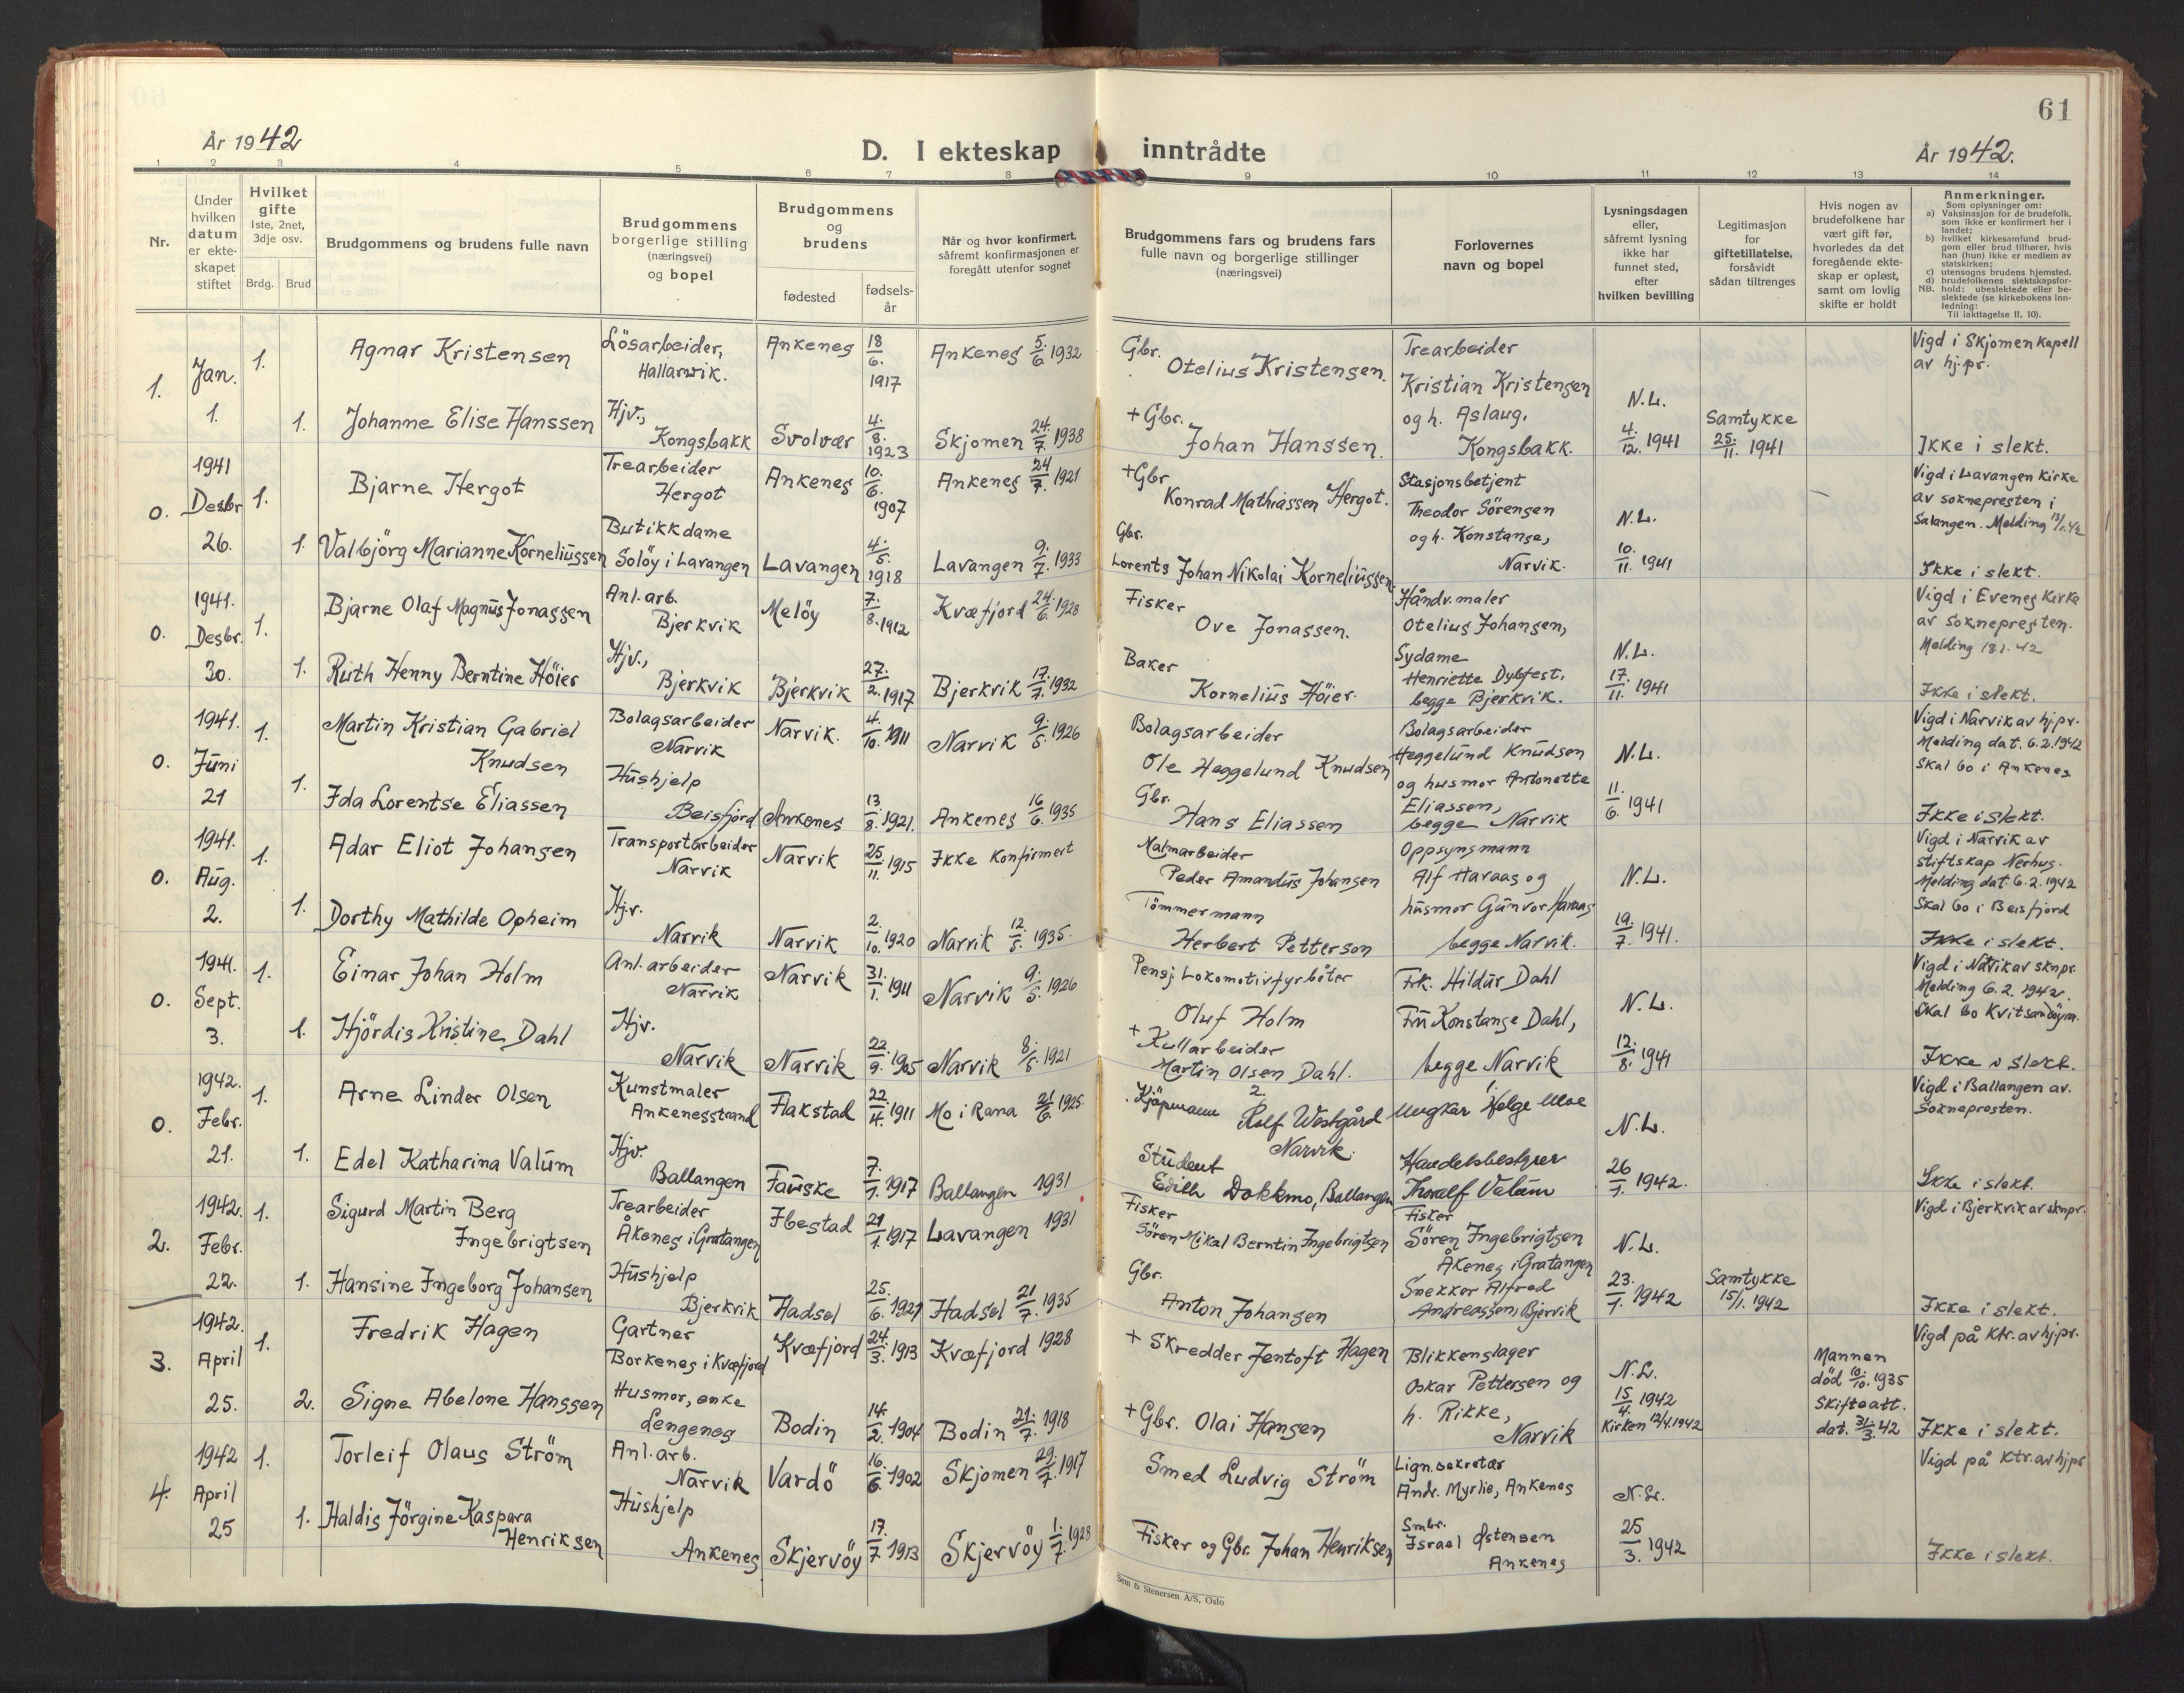 61
År 1942
D. I ekteskap inntrådte
År 1942.
1 2 3 4 5 6 7 8 9 10 11 12 13 14
Nr.
Under hvilken datum er ekte-skapet stiftet
Hvilket gifte
1ste, 2net, 3dje osv.
Brdg. Brud
Brudgommens og brudens fulle navn
Brudgommens borgerlige stilling (næringsvei) og bopel
Brudgommens og brudens
fødested
fødsels-år
Når og hvor konfirmert, såfremt konfirmasjonen er foregått utenfor sognet
Brudgommens fars og brudens fars fulle navn og borgerlige stillinger (næringsvei)
Forlovernes navn og bopel
Lysningsdagen eller, såfremt lysning ikke har funnet sted, efter hvilken bevilling
Legitimasjon for giftetillatelse, forsåvidt sådan tiltrenges
Hvis nogen av brudefolkene har vært gift før, hvorledes da det foregående ekte-skap er opløst, samt om lovlig skifte er holdt
Anmerkninger.
Som oplysninger om:
a) Vaksinasjon for de brudefolk, som ikke er konfirmert her i landet;
b) hvilket kirkesamfund brud-gom eller brud tilhører, hvis han (hun) ikke er medlem av statskirken;
c) utensogns brudens hjemsted.
d) brudefolkenes slektskapsfor-hold: ubeslektede eller be-slektede (se kirkebokens inn-ledning:
NB. Til iakttagelse II. 10).
1. Jan. 1.
1. Agnar Kristensen
Lösarbeider, Hallarvik.
Ankenes 18/6. 1917
Ankenes 5./6 1932
Gbr. Otelius Kristensen.
Trearbeider Kristian Kristensen og h. Aslaug, Kongsbakk.
N.L. 4/12. 1941
Samtykke 25./11. 1941
Vigd i Skjomen Kapell av hj.pr.
1. Johanne Elise Hanssen
Hjv., Kongsbakk
Svolvær 4./8. 1923
Skjomen 24./7. 1938
+ Gbr. Johan Hanssen.
Ikke i slekt.
0. 1941 Desbr 26.
1. Bjarne Hergot
Trearbeider Hergot
Ankenes 10./6. 1907
Ankenes 24/7. 1921
+ Gbr Konrad Mathiassen Hergot.
Stasjonsbetjent Theodor Sörensen og h. Konstanse, Narvik.
N.L. 10./11. 1941
Vigd i Lavangen Kirke av sokneprestен i Salangen. Melding 13/1.42
1. Valbjörg Marianne Korneliussen
Butikkdame Solöy i Lavangen
Lavangen 4./5. 1918
Lavangen 9./7. 1933
Gbr. Lorents Johan Nikolai Korneliussen.
Ikke i slekt.
0. 1941. Desbr. 30.
1. Bjarne Olaf Magnus Jonassen
Anl. arb. Bjerkvik
Melöy 7./8. 1912
Kvæfjord 24./6. 1928
Fisker Ove Jonassen.
Håndv.maler Otelius Johansen, Sydame Henriette Dybfest, begge Bjerkvik.
N.L. 17./11. 1941
Vigd i Evenes Kirke av soknepresten. Melding 18 1. 42
1. Ruth Henny Berntine Höier
Hjv., Bjerkvik
Bjerkvik 27./2. 1917
Bjerkvik 17./7. 1932
Baker Kornelius Höier.
Ikke i slekt.
0. 1941. Juni 21
1. Martin Kristian Gabriel Knudsen
Bolagsarbeider Narvik
Narvik. 4./10. 1911
Narvik 9./5. 1926
Bolagsarbeider Ole Heggelund Knudsen
Bolagsarbeider Heggelund Knudsen og husmor Antonette Eliassen, begge Narvik
N.L. 11./6. 1941
Vigd i Narvik av hj.pr. Melding dat. 6.2.1942 Skal bo i Ankenes
1. Ida Lorentse Eliassen
Hushjelp Beisfjord
Ankenes 13/8. 1921.
Ankenes 16/6. 1935
Gbr. Hans Eliassen
Ikke i slekt.
0. 1941. Aug. 2.
1. Adar Eliot Johansen
Transportarbeider Narvik
Narvik 25/11. 1915
Ikke Konfirmert
Malmarbeider Peder Amandus Johansen
Oppsynsmann Alf Havaas og husmor Gunvor Havaas begge Narvik.
N.L. 19./7. 1941.
Vigd i Narvik av stiftskap Nerhus. Melding dat. 6.2.1942 Skal bo i Beisfjord
1. Dorthy Mathilde Opheim
Hjv. Narvik
Narvik 2./10. 1920
Narvik 12./5. 1935.
Tömmermann Herbert Petterson
Ikke i slekt.
0. 1941. Sept. 3.
1. Einar Johan Holm
Anl. arbeider Narvik
Narvik 31./1. 1911
Narvik 9./5. 1926
Pensj Lokomotivfyrböter Oluf Holm
Frk. Hildur Dahl Fru Konstanse Dahl, begge Narvik
N.L. 12./8. 1941
Vigd i Narvik av sknpr. Melding 6.2.1942. Skal bo Kvitsandöyra.
1. Hjördis Kristine Dahl
Hjv. Narvik
Narvik 22./9. 1905
Narvik 8./5. 1921
+ Kullarbeider Martin Olsen Dahl.
Ikke i slekt.
0. 1942. Febr. 21.
1. Arne Linder Olsen
Kunstmaler Ankenesstrand
Flakstad 22./4. 1911
Mo i Rana 21/6. 1925.
Kjöpmann 2. Rolf Wostgård Narvik.
1. Ungkar Helge Moe
N.L. 26/1. 1942.
Vigd i Ballangen av. Soknepresten.
1. Edel Katharina Valum
Hjv. Ballangen
Fauske 7./1. 1917
Ballangen 1931
Student Edith Dokkmo, Ballangen
Handelsbestyrer Thoralf Valum
Ikke i slekt.
2. 1942. Febr. 22.
1. Sigurd Martin Berg Ingebrigtsen
Trearbeider Åkenes i Gratangen
Ibestad 21/1. 1917
Lavangen 1931
Fisker Sören Mikal Berntin Ingebrigtsen
Fisker Sören Ingebrigtsen Åkenes i Gratangen Snekker Alfred Andreassen, Bjervik
N.L. 23./1. 1942
Samtykke 15/1. 1942
Vigd i Bjerkvik av sknpr.
1. Hansine Ingeborg Johansen
Hushjelp Bjerkvik
Hadsel 25./6. 1921
Hadsel 21/7. 1935
Gbr. Anton Johansen
Ikke i slekt.
3. 1942. April 25.
1. Fredrik Hagen
Gartner Borkenes i Kvæfjord
Kvæfjord 24./3. 1913
Kvæfjord 1928
+ Skredder Jentoft Hagen
Blikkenslager Oskar Pettersen og h. Rikke, Narvik
N.L. 15/4. 1942 Kirken 12/4.1942
Mannen död 10./10. 1935 Skifteatt. dat. 31./3. 42
Vigd på Ktr. av hj.pr.
2. Signe Abelone Hanssen
Husmor, enke Lengenes
Bodin 14./2. 1904
Bodin 21./7. 1918
+ Gbr. Olai Hansen
Ikke i slekt.
4. 1942 April 25
1. Torleif Olaus Ström
Anl. arb. Narvik
Vardö 16./6. 1902
Skjomen 29./7. 1917
Smed Ludvig Ström
Lign.sekretær Andr. Myrlie, Ankenes Smbr. Israel Østensen Ankenes
N.L. 25/3. 1942
Vigd på Ktr. av hj.pr
1. Haldis Jörgine Kaspara Henriksen
Hushjelp Ankenes
Skjervöy 17./7 1913
Skjervöy 1./7. 1928
Fisker og Gbr. Johan Henriksen
Ikke i slekt.
Sem & Stenersen A/S, Oslo